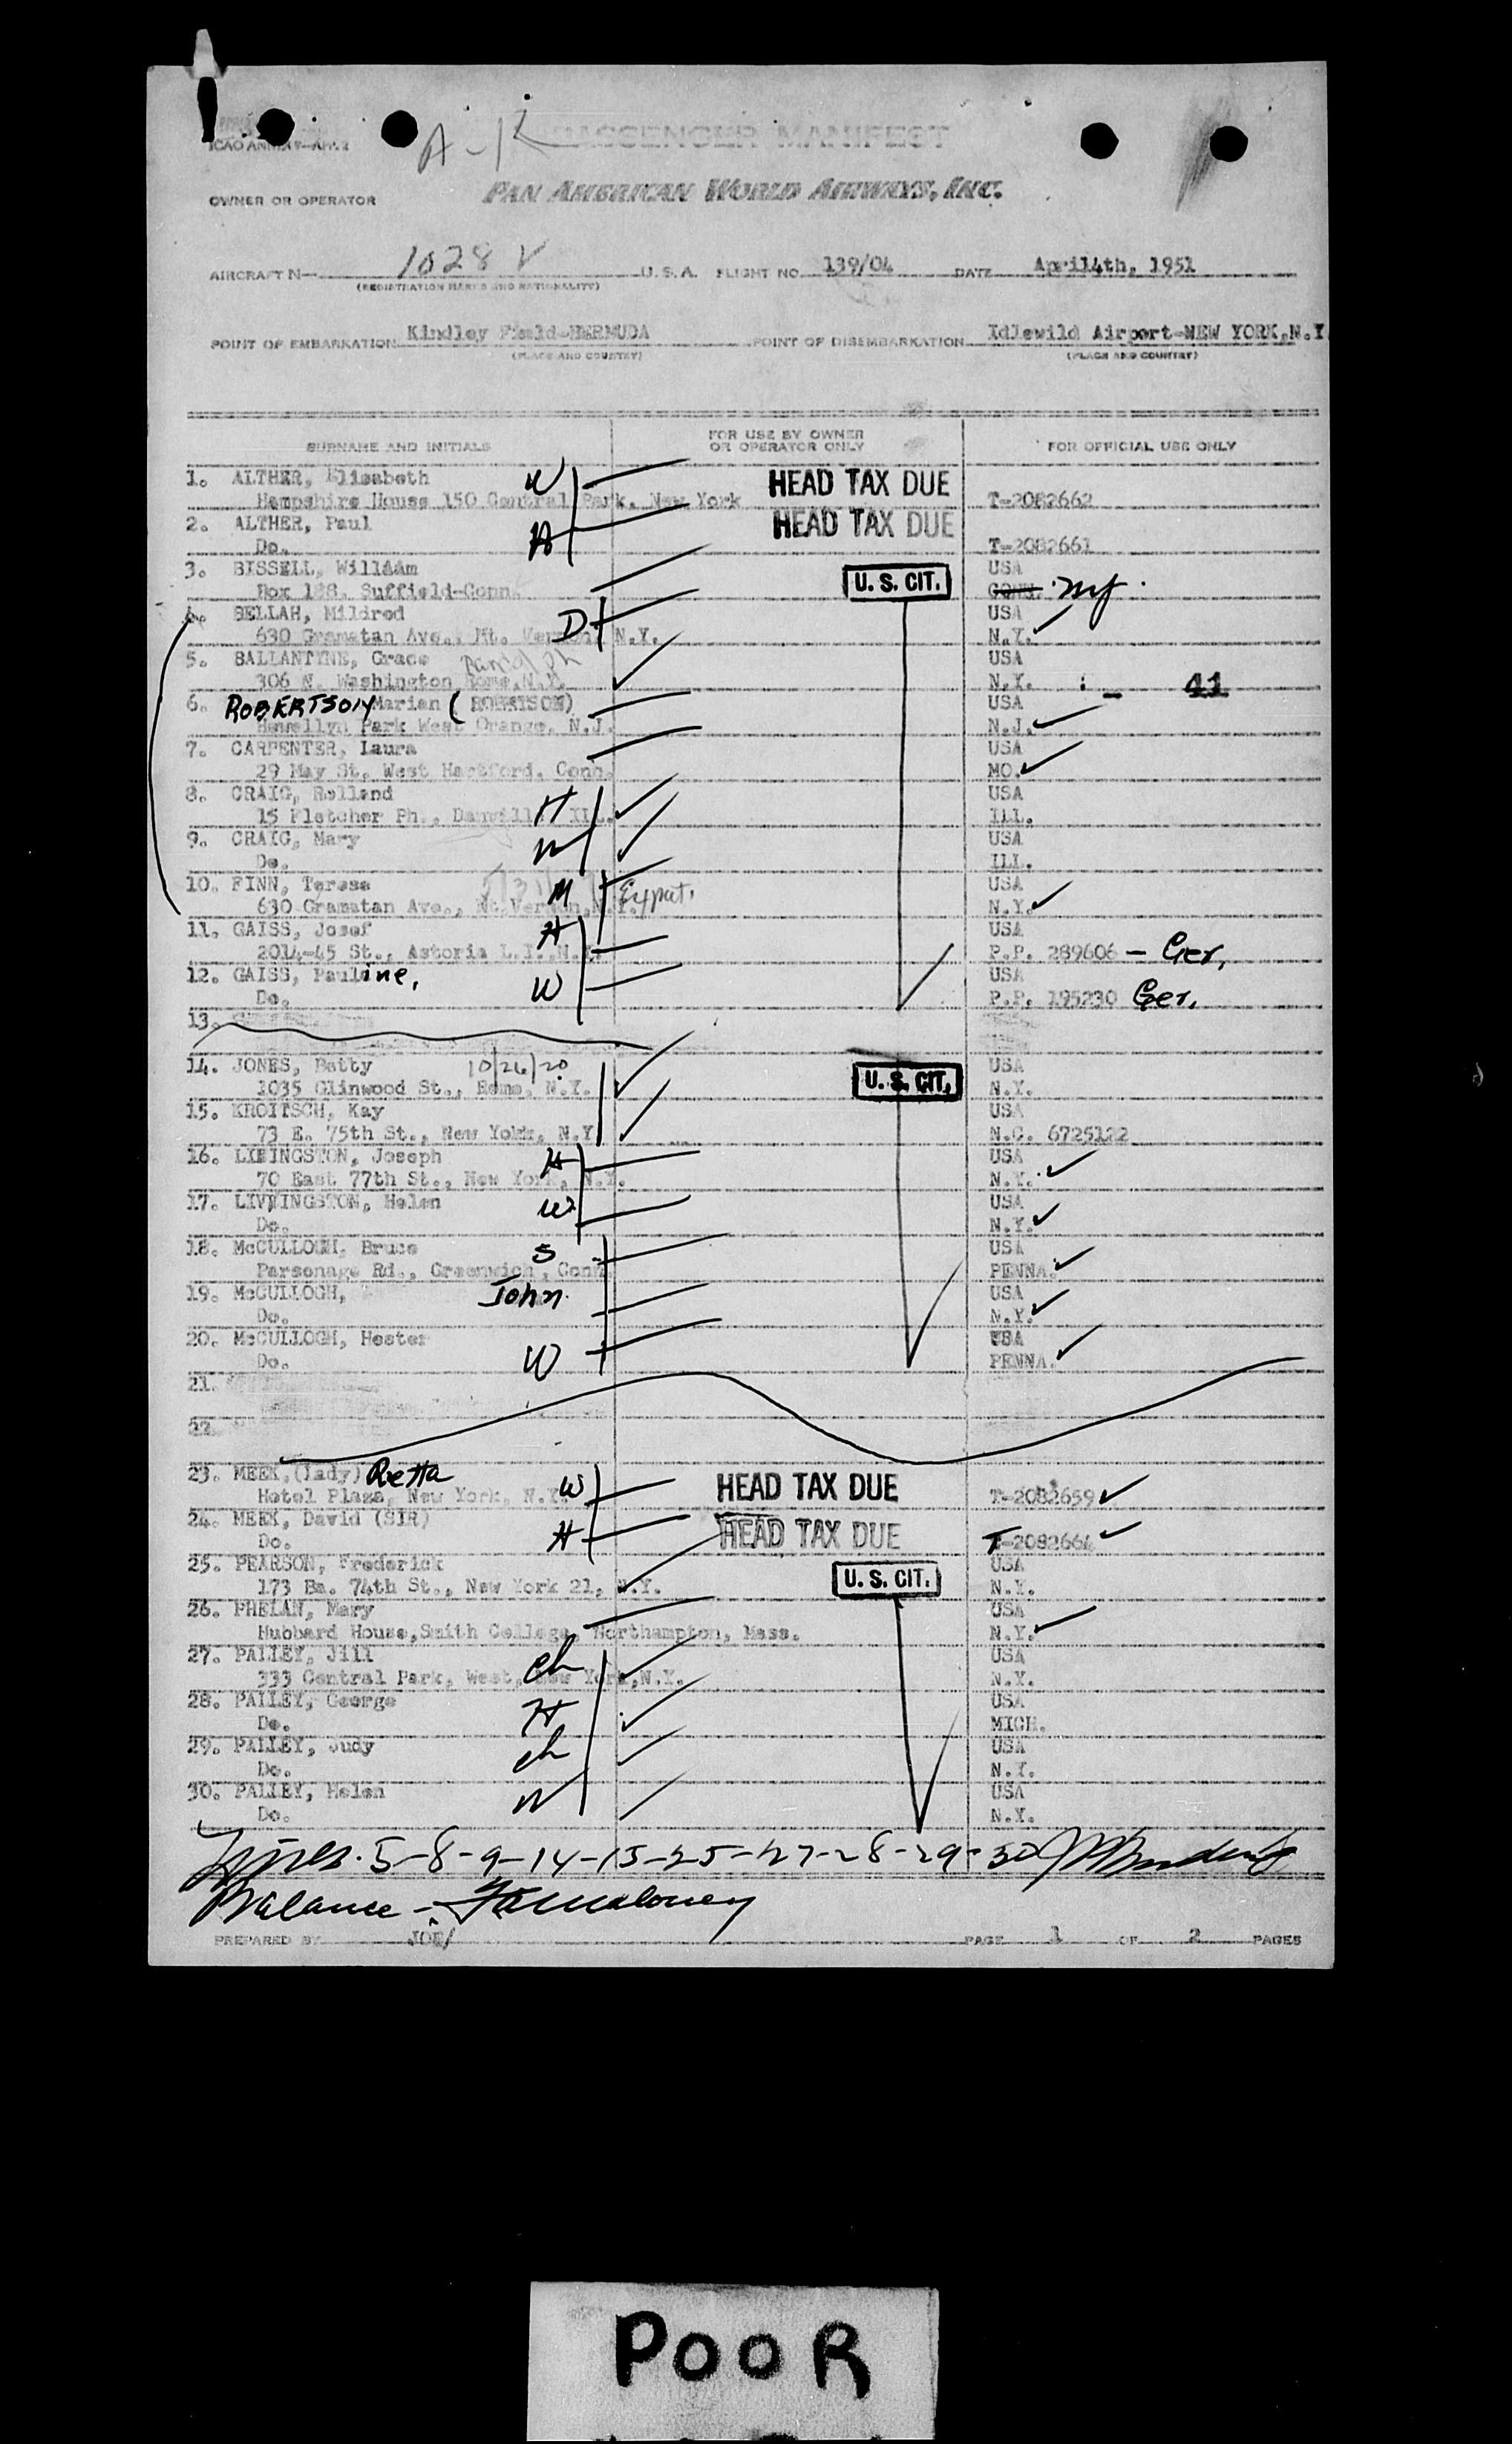 ICAO ANNEX 9-APP. 2
A-K PASSENGER MANIFEST
OWNER OR OPERATOR PAN AMERICAN WORLD AIRWAYS, INC.
AIRCRAFT N- 1028 V U.S.A. FLIGHT NO. 139/04 DATE April4th, 1951
(REGISTRATION MARKS AND NATIONALITY)
POINT OF EMBARKATION Kindley Field-BERMUDA POINT OF DISEMBARKATION Idlewild Airport-NEW YORK,N.Y.
(PLACE AND COUNTRY) (PLACE AND COUNTRY)
SURNAME AND INITIALS FOR USE BY OWNER OR OPERATOR ONLY FOR OFFICIAL USE ONLY
1. ALTHER, Elisabeth W HEAD TAX DUE
Hampshire House 150 Central Park, New York T-2082662
2. ALTHER, Paul H HEAD TAX DUE
Do. T-2082661
3. BISSELL, William U. S. CIT. USA
Box 188, Suffield-Conn. CONN. NY
4. BELLAH, Mildred D USA
630 Gramatan Ave., Mt. Vernon, N.Y. N.Y.
5. BALLANTYNE, Grace USA
306 N. Washington Rome,N.Y. N.Y. 41
6. ROBERTSON Marian (ROBATSON) USA
Llewellyn Park West Orange, N.J. N.J.
7. CARPENTER, Laura USA
29 May St. West Hartford, Conn. MO.
8. CRAIG, Rolland H USA
15 Fletcher Ph., Danville, ILL. ILL.
9. CRAIG, Mary W USA
Do. ILL.
10. FINN, Teresa M Expat. USA
630 Gramatan Ave., Mt. Vernon,N.Y. N.Y.
11. GAISS, Josef H USA
2014-45 St., Astoria L.I.,N.Y. P.P. 289606 - Ger.
12. GAISS, Pauline, W USA
Do. P.P. 195230 Ger.
13.
14. JONES, Betty 10/26/20 U. S. CIT. USA
1035 Glinwood St., Rome, N.Y. N.Y.
15. KROITSCH, Kay USA
73 E. 75th St., New York, N.Y. N.C. 6725122
16. LIVINGSTON, Joseph H USA
70 East 77th St., New York, N.Y. N.Y.
17. LIVINGSTON, Helen W USA
Do. N.Y.
18. McCULLOGH, Bruce S USA
Parsonage Rd., Greenwich, Conn. PENNA.
19. McCULLOGH, John USA
Do. N.Y.
20. McCULLOGH, Hester W USA
Do. PENNA.
21.
22.
23. MEEK,(Lady) Retta W HEAD TAX DUE
Hotel Plaza, New York, N.Y. T-2082659
24. MEEK, David (SIR) H HEAD TAX DUE
Do. T-2082664
25. PEARSON, Frederick U. S. CIT. USA
173 Ea. 74th St., New York 21, N.Y. N.Y.
26. PHELAN, Mary USA
Hubbard House,Smith College, Northampton, Mass. N.Y.
27. PALLEY, Jill ch USA
333 Central Park, West, New York,N.Y. N.Y.
28. PALLEY, George H USA
Do. MICH.
29. PALLEY, Judy ch USA
Do. N.Y.
30. PALLEY, Helen W USA
Do. N.Y.
Lines. 5-8-9-14-15-25-27-28-29-30
Balance -
PREPARED BY JOE/ PAGE 1 OF 2 PAGES
POOR